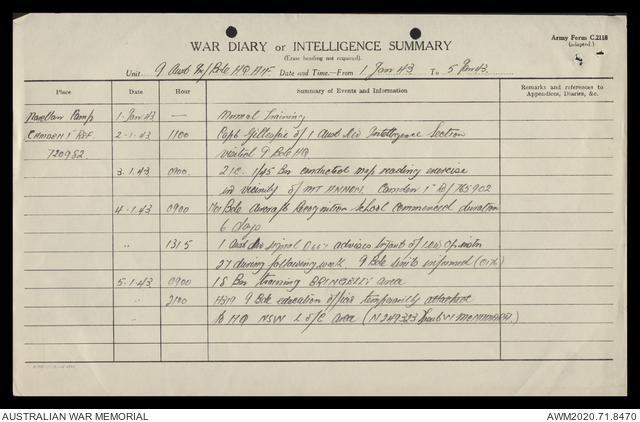 Army Form C.2118
(adapted.)
WAR DIARY or INTELLIGENCE SUMMARY
(Erase heading not required).
Unit 9 Aust Inf Bde HQ AIF Date and Time—From 1 Jan 43 To 5 Jan 43
Place Date Hour Summary of Events and Information Remarks and references to Appendices, Diaries, &c.
Narellan Camp 1-Jan 43 — Normal Training
CAMDEN 1" REF. 2-1-43 1100 Capt Gillespie of 1 Aust Div Intelligence Section
720982. visited 9 Bde HQ
3.1.43 0900. 2IC. 1/45 Bn conducted map reading exercise
in vicinity of MT ANNON. Camden 1" 765902
4-1-43 0900 Bde Aircraft Recognition School commenced duration
6 days
" 1315 1 Aust Div Signal advises of
27 during following week. 9 Bde units informed
5-1-43 0900 18 Bn training BRINGELLY area
" 2100 9 Bde education officer temporarily attached
to HQ NSW L of C area (N249323
AUSTRALIAN WAR MEMORIAL AWM2020.71.8470